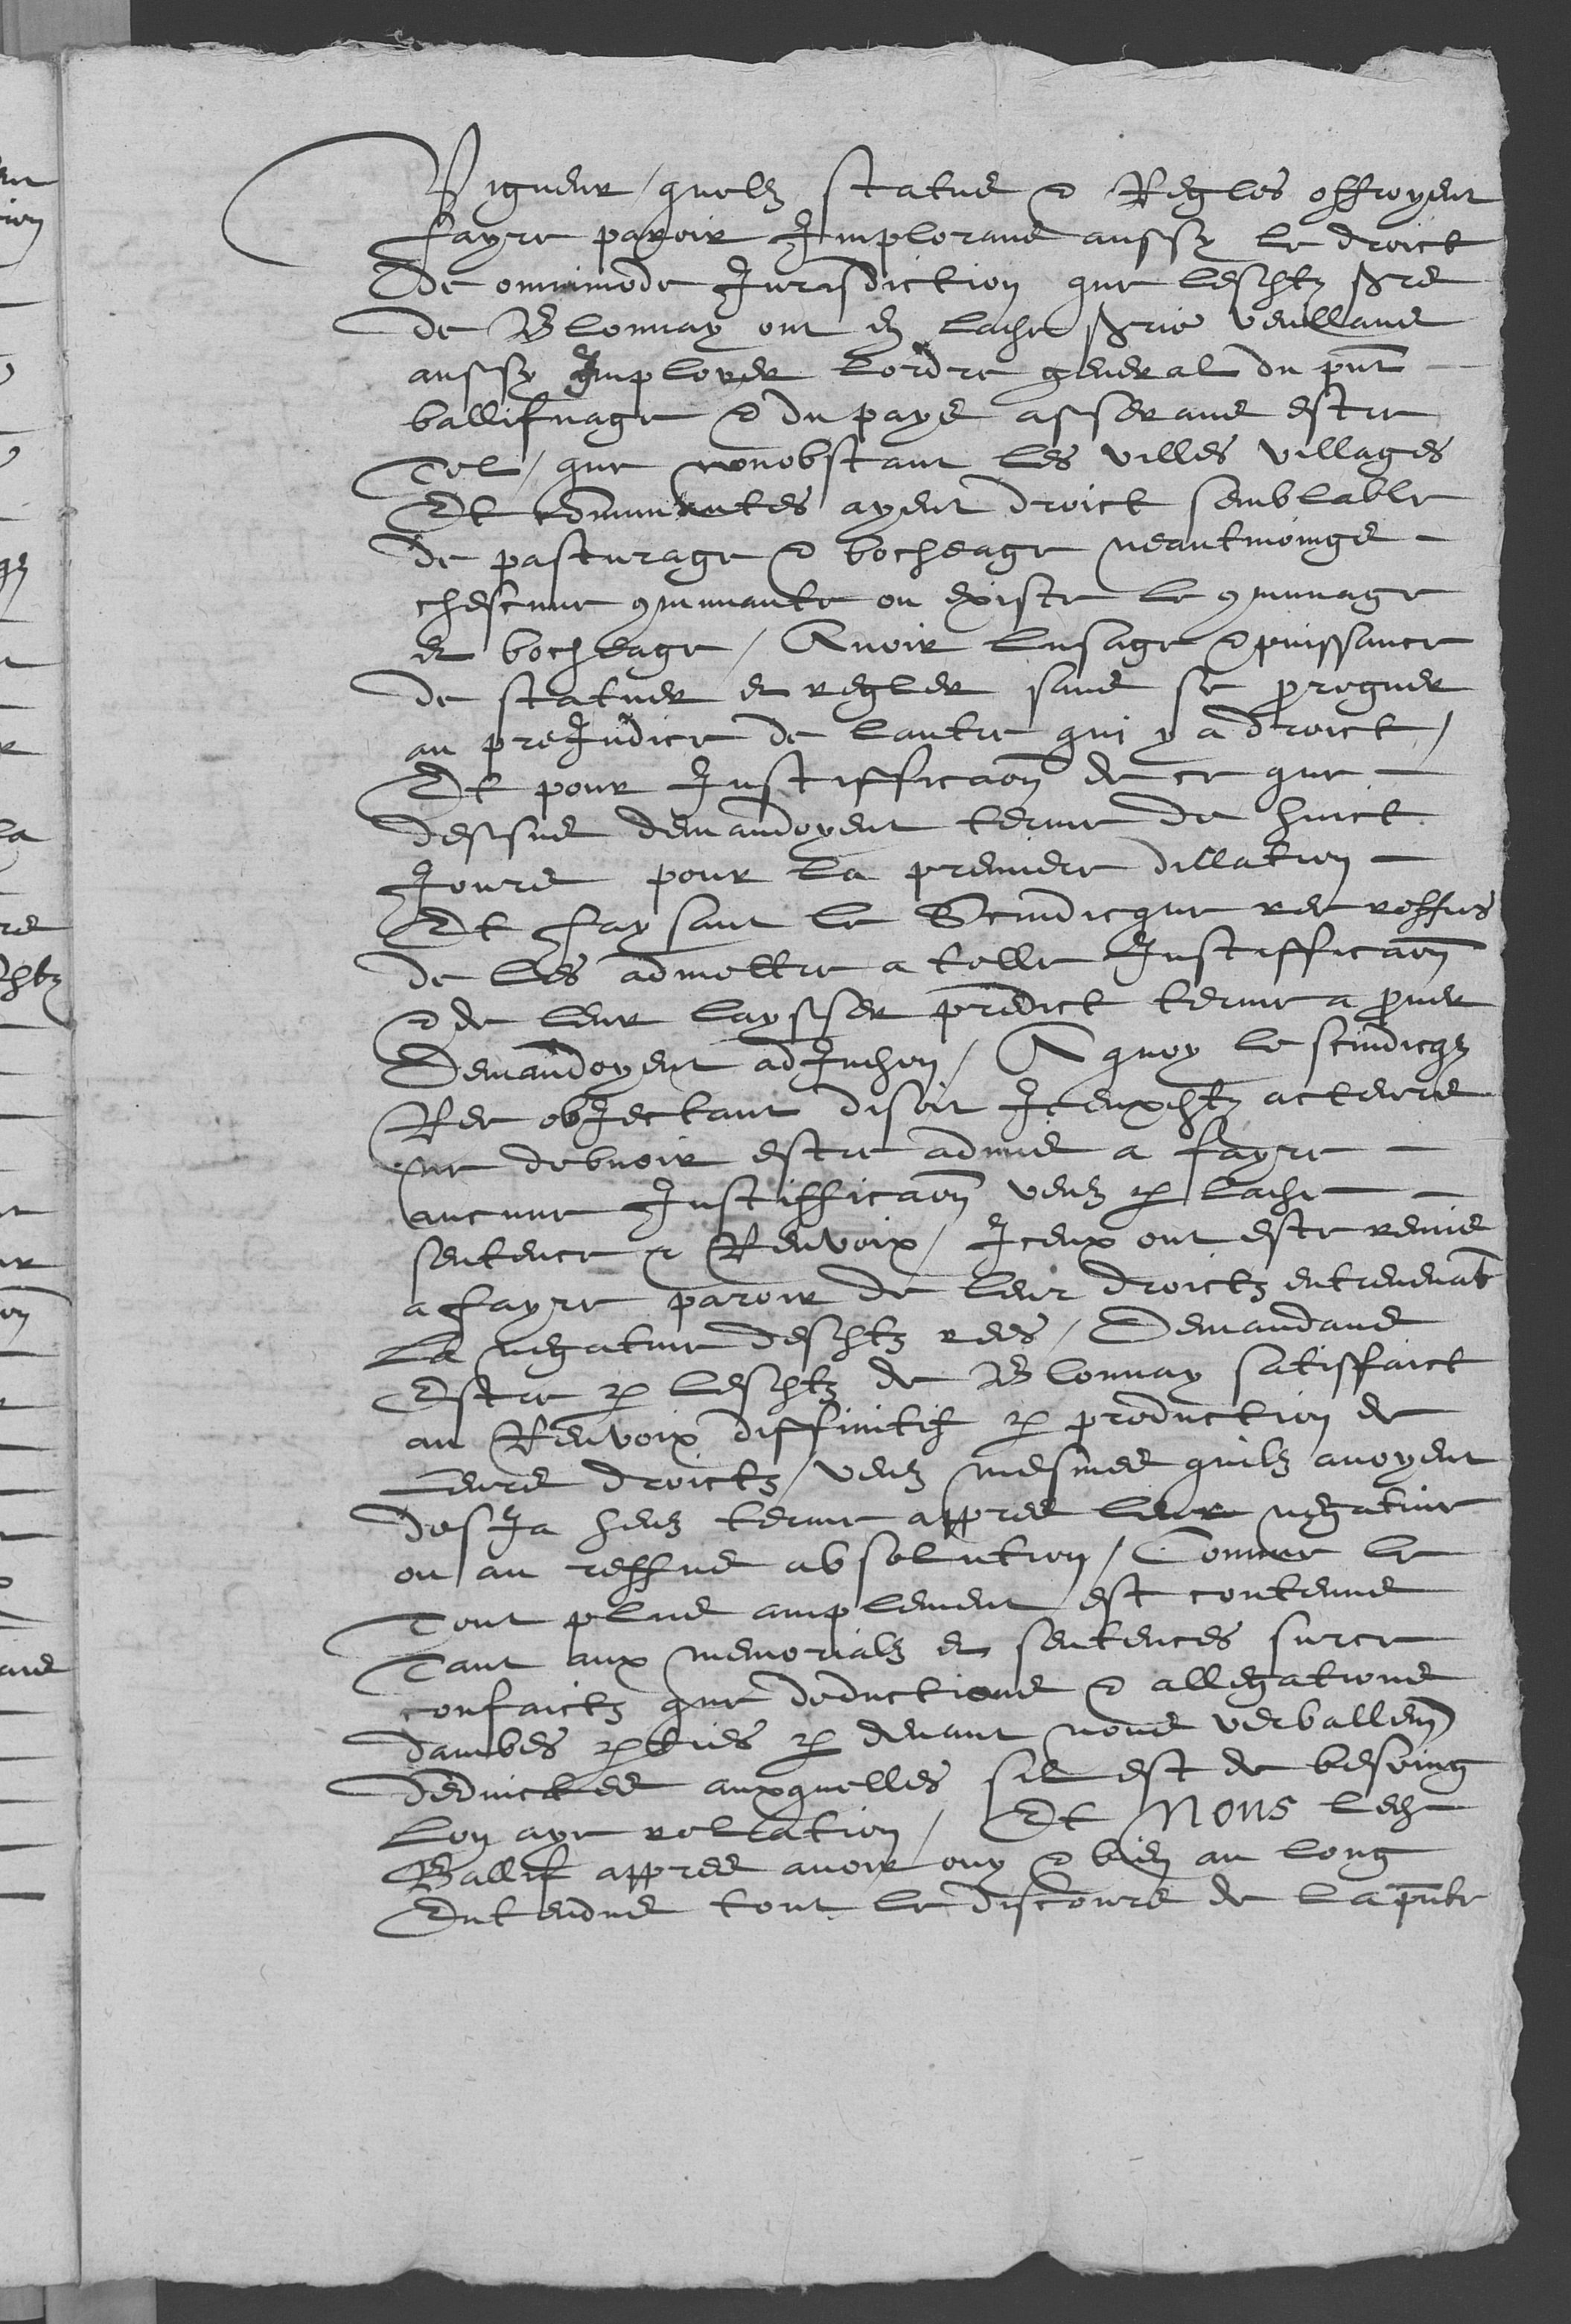 Vigueur / quelz statuts & Regles offroyent
fayre paroir Implorans aussy le droict
De omnimode Jurisdiction que lesdtz srs
de Blonnay ont en ladte srie veullans
aussy Implorer lordre general du pnt
ballifuage & du pays asserans estre
Tel / que nonobstant les villes villages
Et communautes ayent droict semblable
de pasturage & bocheage neantmoings
chescune 9munaute ou existe le 9munage
et bocheage / Avoir lusage & puissance
de statuer et regler sans se proguer
au preJudice de lautre qui y a droict /
Et pour Justifficaon de ce que
dessus demandoyent terme de huict
Jours pour la premiere dillation
Et faysant le Scindicque ree reffus
de les admettre a telle Justifficaon
& de leur laysser predict terme a prover
Demandoyent adJudion / A quoy le scindicqz
Ree obJectant disoit Iceuxdtz acteurs
ne debvoir estre admis a fayre
aucune Justifficaon veuz p ladte
sentence & Renvoix / Iceux ont este remis
a fayre paroir de leur droictz entrevenant
La negative desdtz rees / Demandans
Estre p lesdtz de Blonnay satisffaict
au Renvoix diffinitif p production de
leurs droictz / veuz mesmes quilz avoyent
desJa heuz terme appres leur negative
ou au reffus absolution / Comme le
Tout plus amplement est contenus
Tant aux memorialz et sentences surce
confaictz que deductions & allegations
dambes pties p devant nous verballemt
deduictes auxquelles sil est de besoing
Lon aye rellation / Et Nous ledt
Ballif appres avoir ouy & bien au long
Entendus tout le discours de la pnte